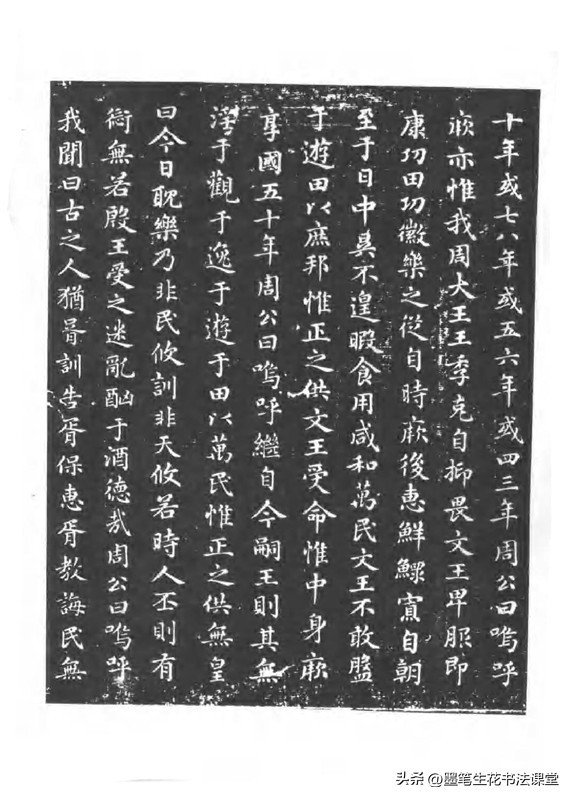 十年或七八年或五六年或四三年周公曰嗚呼
厥亦惟我周大王王季克自抑畏文王卑服即
康功田功徽樂之從自時厥後惠鮮鰥寡自朝
至于日中昃不遑暇食用咸和萬民文王不敢盤
于遊田以庶邦惟正之供文王受命惟中身厥
享國五十年周公曰嗚呼繼自今嗣王則其無
淫于觀于逸于遊于田以萬民惟正之供無皇
曰今日耽樂乃非民攸訓非天攸若時人丕則有
愆無若殷王受之迷亂酗于酒德哉周公曰嗚呼
我聞曰古之人猶胥訓告胥保惠胥教誨民無
头条 @墨笔生花书法课堂